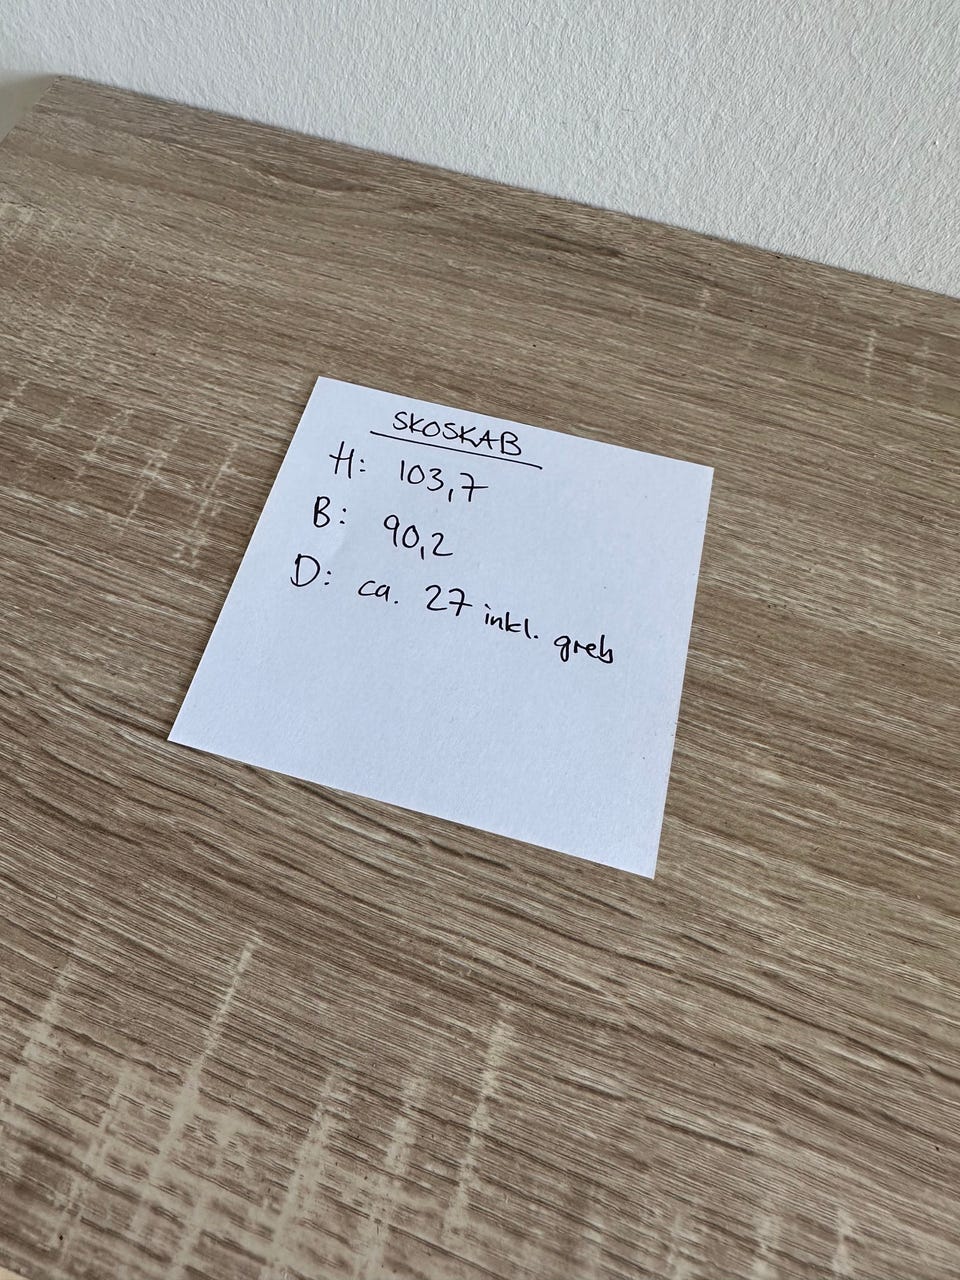 SKOSKAB
H: 103,7
B: 90,2
D: ca. 27 inkl. greb